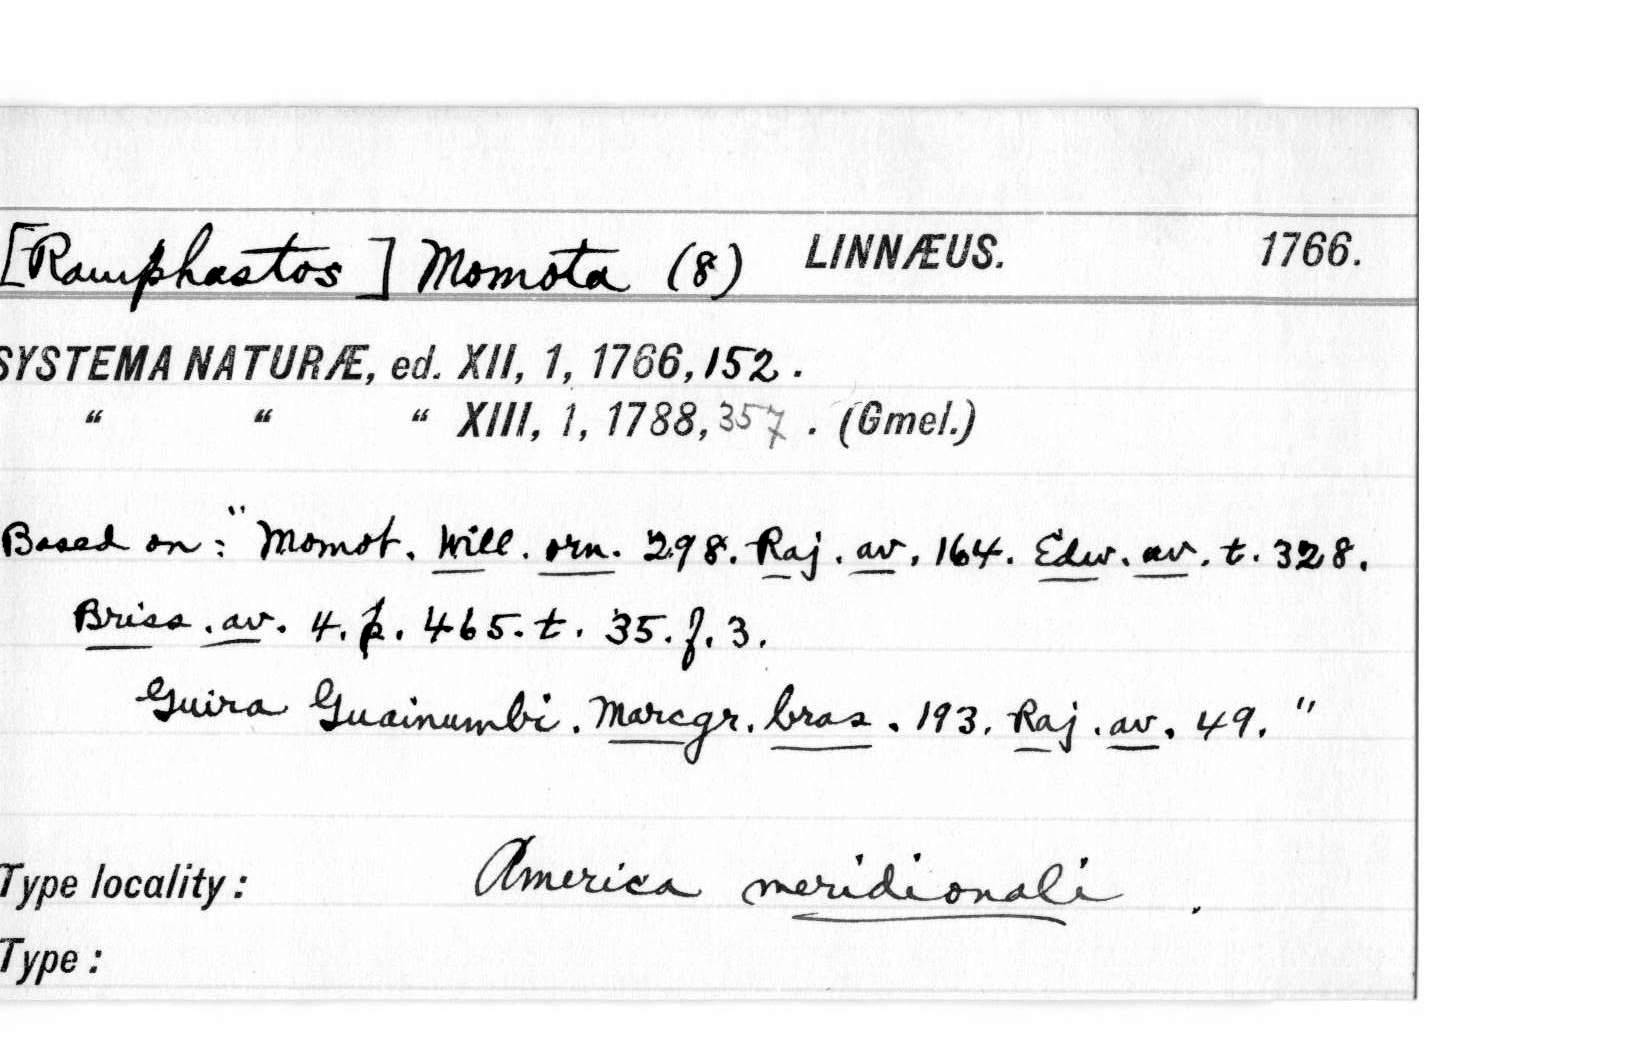 [Ramphastos] Momota (8) LINNÆUS. 1766.
SYSTEMA NATURÆ, ed. XII, 1, 1766, 152.
“ “ “ XIII, 1, 1788, 357. (Gmel.)
Based on: " Momot. Will. orn. 298. Raj. av. 164. Edw. av. t. 328.
Briss. av. 4. p. 465. t. 35. f. 3.
Guira Guainumbi. Marcgr. bras. 193. Raj. av. 49. "
Type locality: America meridionali.
Type: